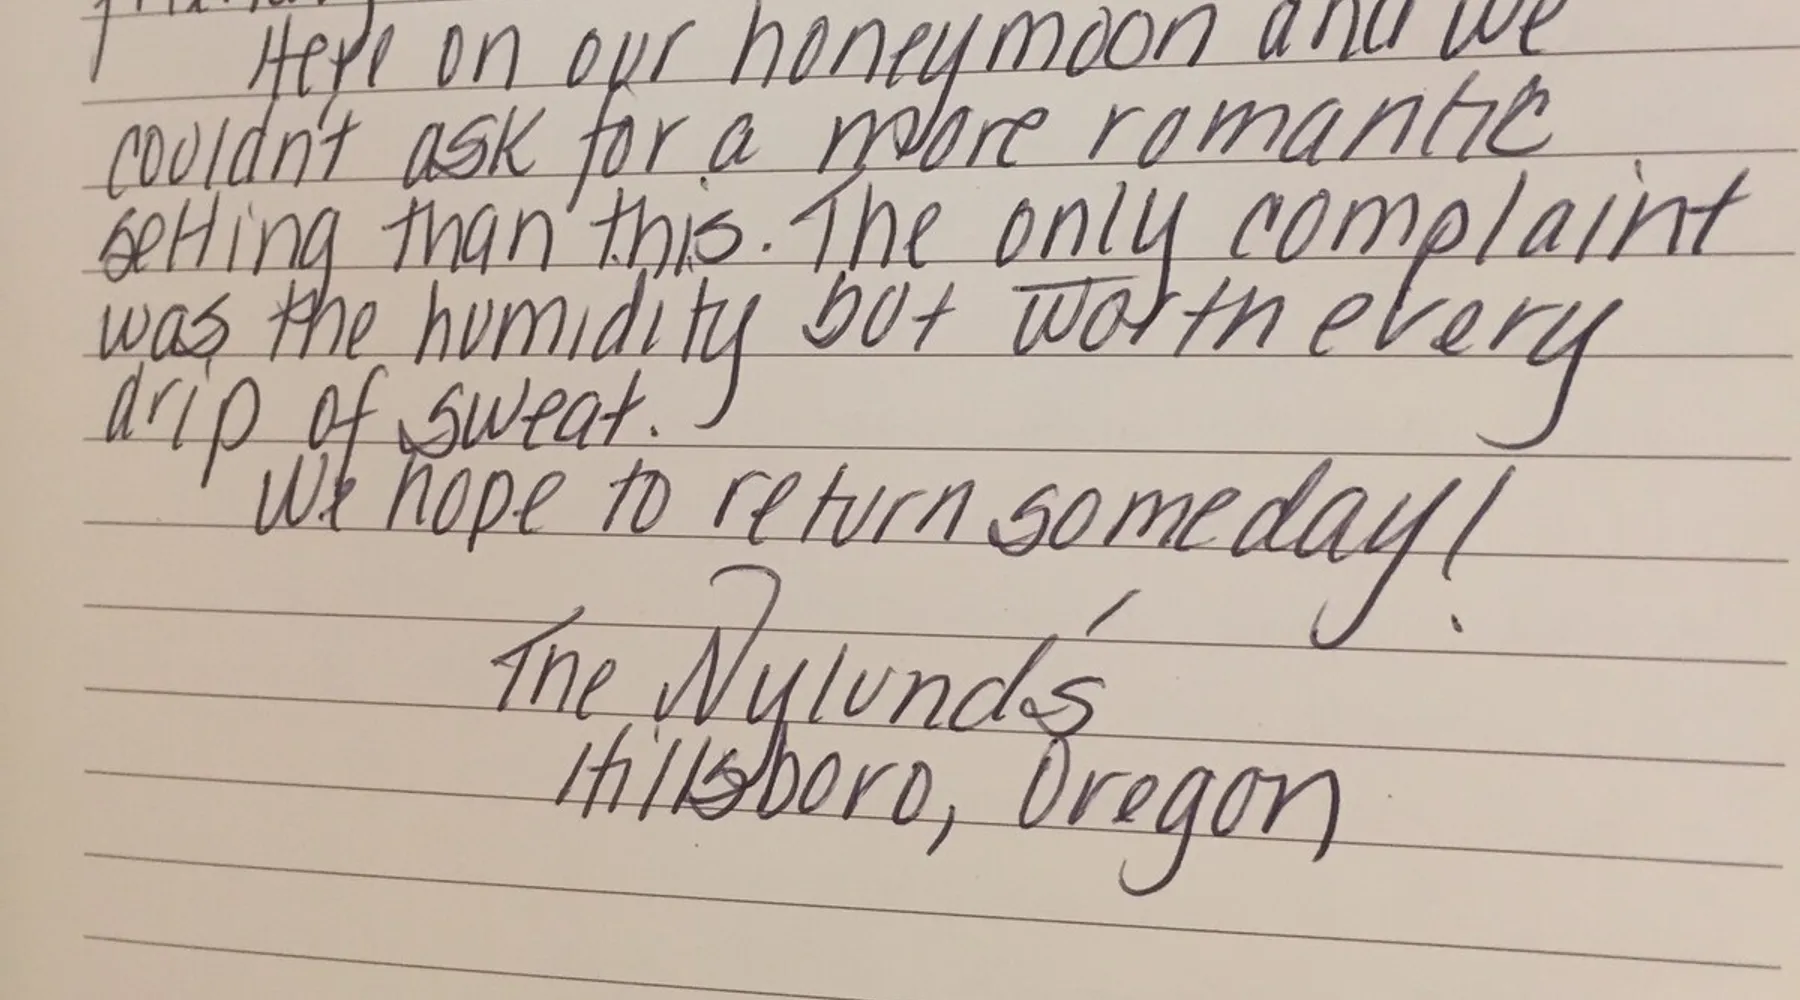 Here on our honeymoon and we
couldn't ask for a more romantic
setting than this. The only complaint
was the humidity but worth every
drip of sweat.
We hope to return someday!
The Nylund's
Hillsboro, Oregon